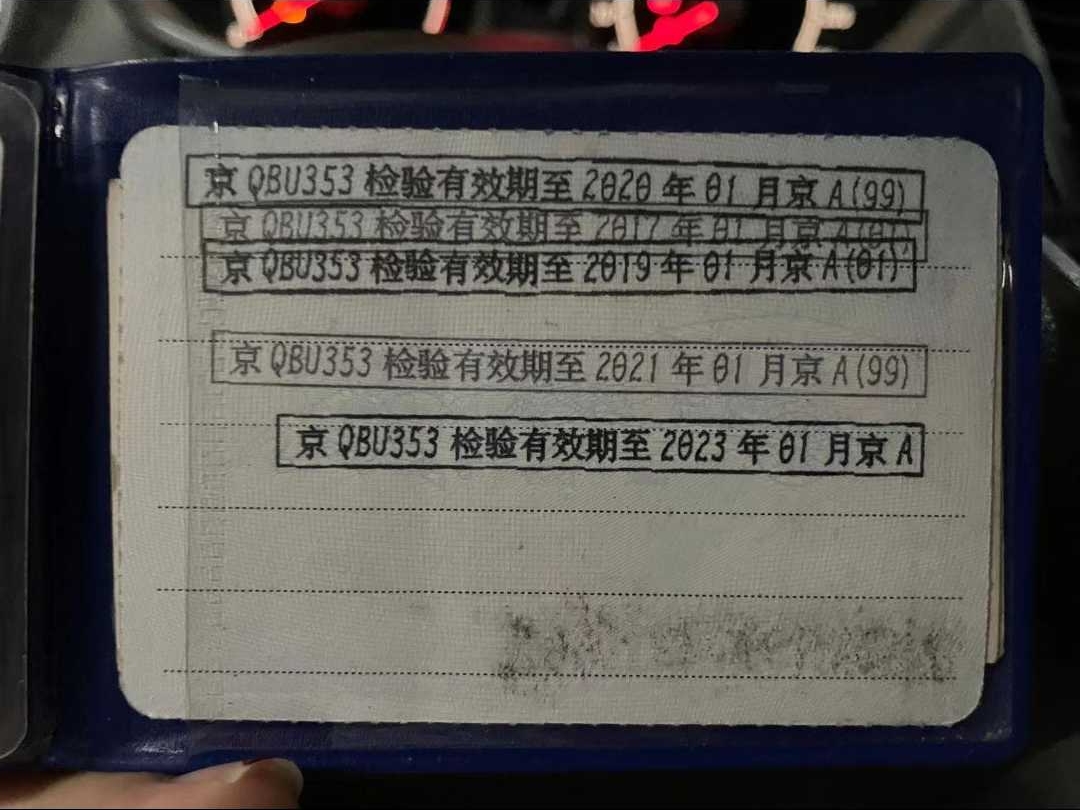 京 QBU353 检验有效期至 2020 年 01 月京 A(99)
京 QBU353 检验有效期至 2017 年 01 月京 A(01)
京 QBU353 检验有效期至 2019 年 01 月京 A(01)
京 QBU353 检验有效期至 2021 年 01 月京 A(99)
京 QBU353 检验有效期至 2023 年 01 月京 A